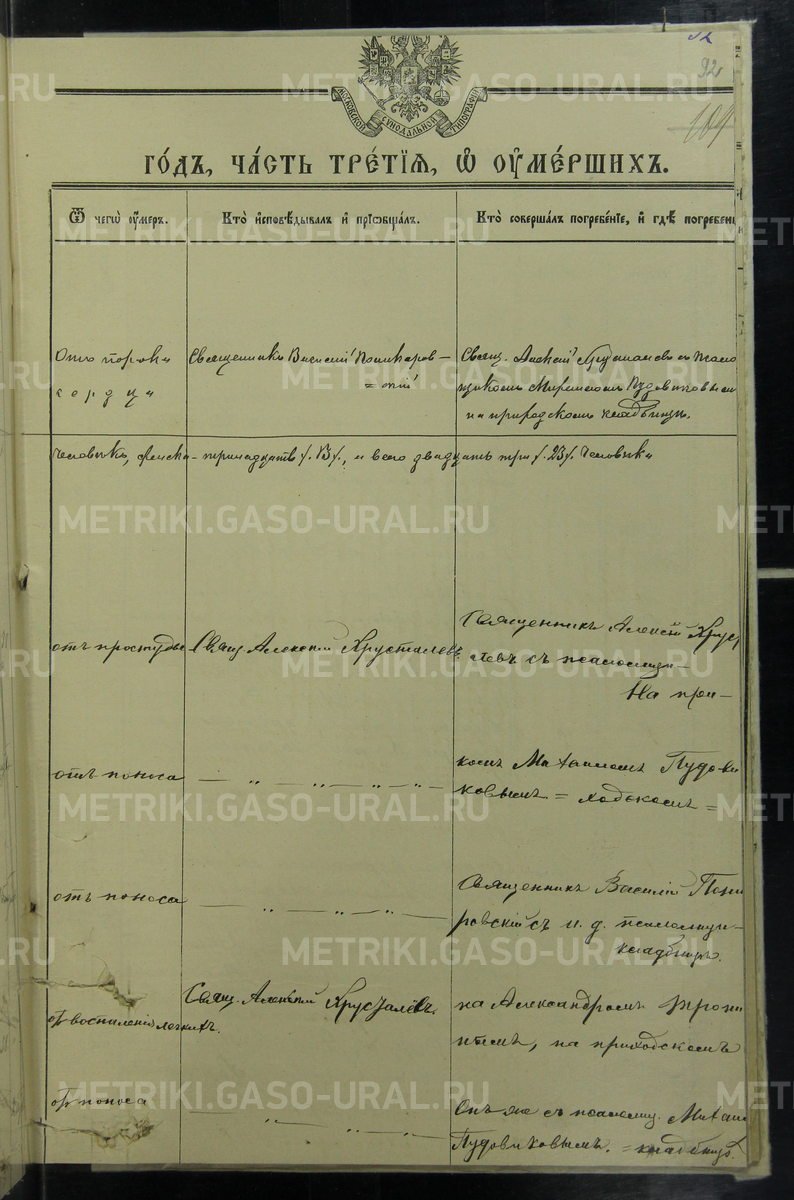 92
104
МОСКОВСКОЙ СѴНОДАЛЬНОЙ ТИПОГРАФІИ
ГО́ДЪ, ЧА́СТЬ ТРЕ́ТІѦ, Ѡ҆ ОУ҆МЕ́РШИХЪ.
Ѿ чегѡ̀ оу҆́меръ.
Кто̀ и҆сповѣ́дывалъ и҆ прїѡбща́лъ.
Кто̀ соверша́лъ погребе́нїе, и҆ гдѣ̀ погребены̀
Отъ порока
сердца
Священникъ Василій Пономаров-
= скій
Свящ. Алексій Хрусталевъ съ псалом
щикомъ Пудовиковымъ
на приходскомъ кладбищѣ.
человѣкъ, женска- тринадцать /.13/., и всего двадцать три /.23/. человѣка
отъ простуды
Свящ. Алексій Хрусталевъ
Священникъ Алексій Хрус
левъ съ псаломщи-
На при-
отъ поноса
— „ — „ — „ — „ —
комъ Михаиломъ Пудови
ковымъ = ходскомъ =
отъ поноса
— „ — „ — „ —
Священникъ Василій
ровскій съ и. д. псаломщи-
кладбищѣ.
отъ воспаленія легкихъ.
Свящ. Алексій Хрусталевъ.
ка Александромъ Трони
нымъ, на приходскомъ
отъ поноса
— „ — „ — „ —
Онъ же съ псаломщ. Михаи
Пудовиковымъ. = кладбищѣ.
METRIKI.GASO-URAL.RU